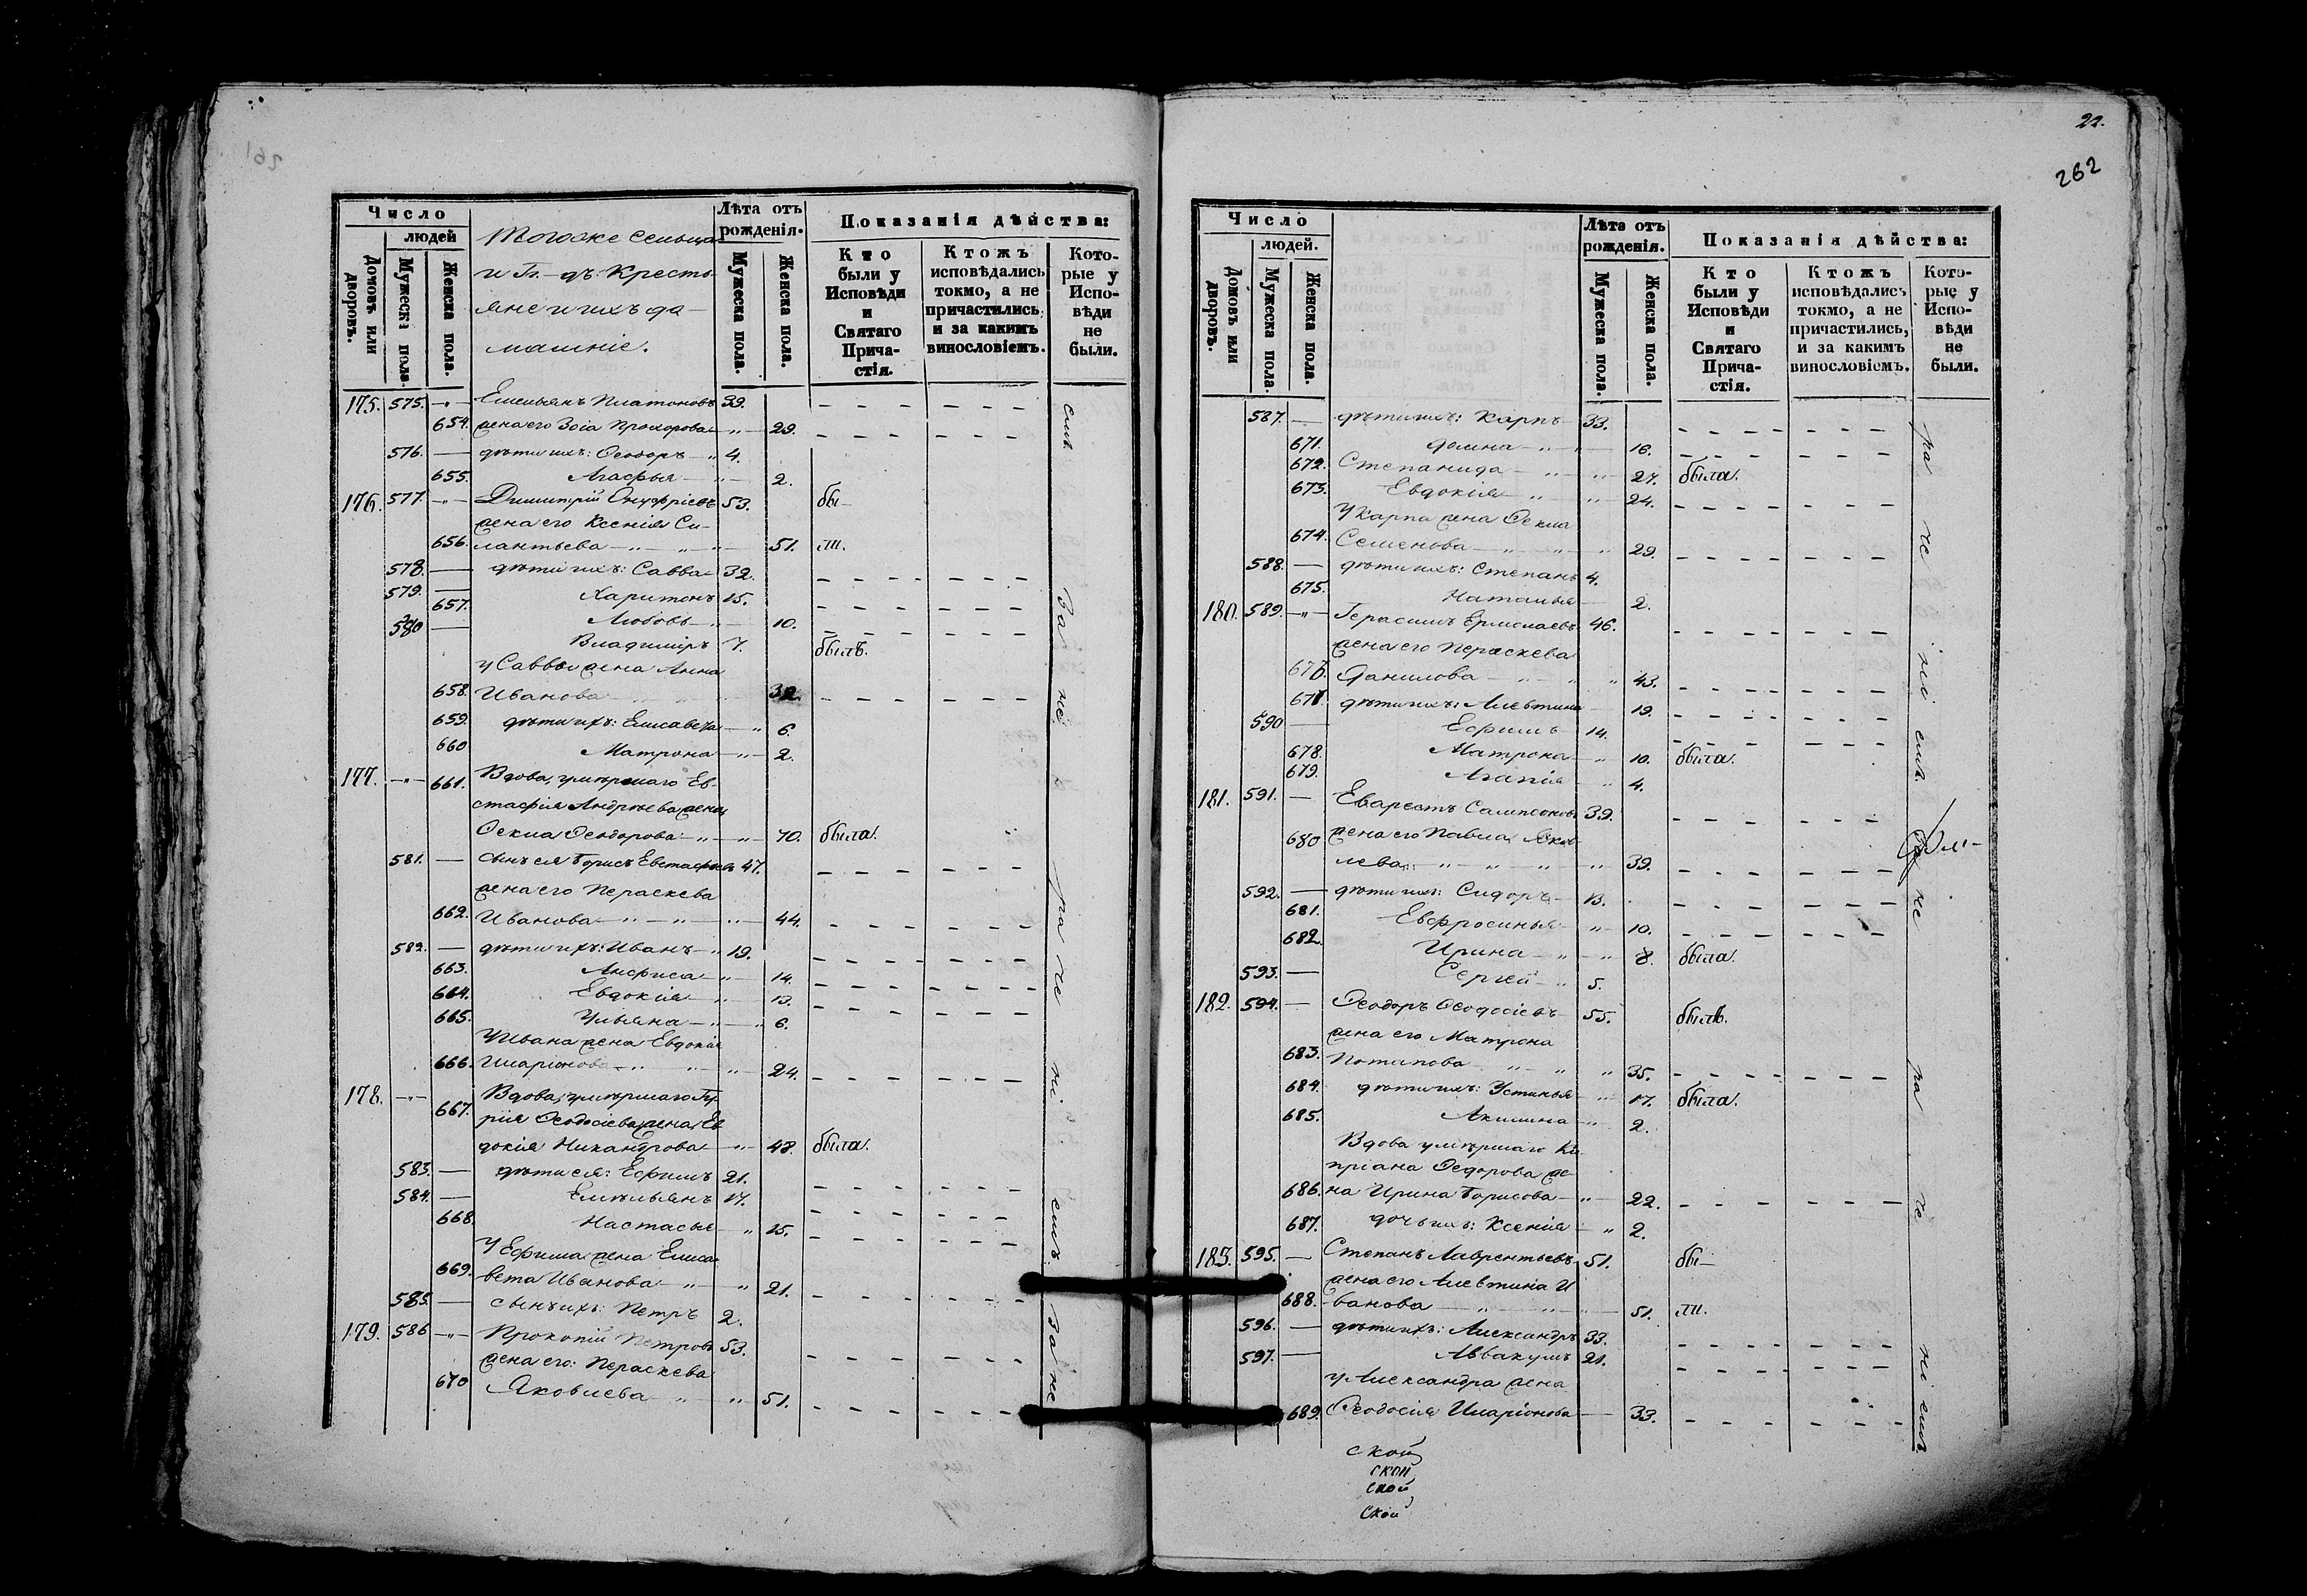 22.
262
261
Число
людей
Домовъ или дворовъ.
Мужеска пола.
Женска пола.
Тогоже сельца
и Г. дъ: Кресть-
яне и ихъ до-
машніе.
Лѣта отъ рожденія.
Мужеска пола.
Женска пола.
Показанія дѣйства:
Кто были у Исповѣди и Святаго Прича-стія.
Ктожъ исповѣдались токмо, а не причастились и за какимъ винословіемъ.
Кото-рые у Испо-вѣди не были.
175. 575. Емельянъ Платоновъ 39.
654. жена его Зоіа Прохорова 29.
576. дѣти ихъ: Ѳеодоръ 4.
655. Агафья 2.
176. 577. Димитрій Онуфріевъ 53. бы-
жена его Ксенія Си-
656. лантьева 51. ли.
578. дѣти ихъ: Савва 32.
579. Харитонъ 15.
657. Любовь 10.
580 Владимiръ 7. былъ.
у Саввы жена Анна
658. Иванова 32.
659. дѣти ихъ: Елисавета 6.
660 Матрона 2.
177. 661. Вдова, умершаго Ев-
стафія Андреева жена
Ѳекла Ѳеодорова 70. была.
581. сынъ ея Борисъ Евстафьевъ 47.
жена его Параскева
662. Иванова 44.
582. дѣти ихъ: Иванъ 19.
663. Анфиса 14.
664. Евдокія 13.
665. Ульяна 6.
У Ивана жена Евдокія
666. Иларіонова 24.
178. Вдова, умершаго Гу-
667. рія Ѳеодосіева жена Ев-
докія Никандрова 48. была.
583. дѣти ея: Ефимъ 21.
584. Емельянъ 17.
668. Настасья 15.
У Ефима жена Елиса-
669. вета Иванова 21.
585. сынъ ихъ: Петръ 2.
179. 586 Прокопій Петровъ 53.
жена его: Параскева
670 Яковлева 51.
За не ра че ні емъ. За не
Число
людей.
Домовъ или дворовъ.
Мужеска пола.
Женска пола.
Лѣта отъ рожденія.
Мужеска пола.
Женска пола.
Показанія дѣйства:
Кто были у Исповѣди и Святаго Прича-стія.
Ктожъ исповѣдались токмо, а не причастились, и за какимъ винословіемъ.
Кото-рые у Испо-вѣди не были.
587. дѣти ихъ: Карпъ 33.
671. Домна 16.
672. Степанида 27. была.
673. Евдокія 24.
У Карпа жена Ѳекла
674. Семенова 29.
588. дѣти ихъ: Степанъ 4.
675. Наталья 2.
180. 589. Герасимъ Ермолаевъ 46.
жена его Параскева
676. Данилова 43.
677. дѣти ихъ: Алевтина 19.
590 Ефимъ 14.
678. Матрона 10. была.
679. Агапія 4.
181. 591. Еварестъ Сампсоновъ 39.
680 жена его Павла Яков-
лева 39.
592. дѣти ихъ: Сидоръ 13.
681. Евфросинья 10.
682. Ирина 8. была.
593. Сергей 5.
182. 594. Ѳеодоръ Ѳеодосіевъ 55. былъ.
жена его Матрона
683. Потапова 35.
684. дѣти ихъ: Устинья 17. была.
685. Акилина 2.
Вдова умершаго Ки-
пріана Ѳедорова же-
686. на Ирина Борисова 22.
687. дочь ихъ: Ксенія 2.
183. 595. Степанъ Лаврентьевъ 51. бы-
жена его Алевтина И-
688. ванова 51. ли.
596. дѣти ихъ: Александръ 33.
597. Аввакумъ 21.
у Александра жена
689. Ѳеодосія Иларіонова 33.
ра че ні емъ. За не ра че ні емъ.
ской
ской
ской
ской